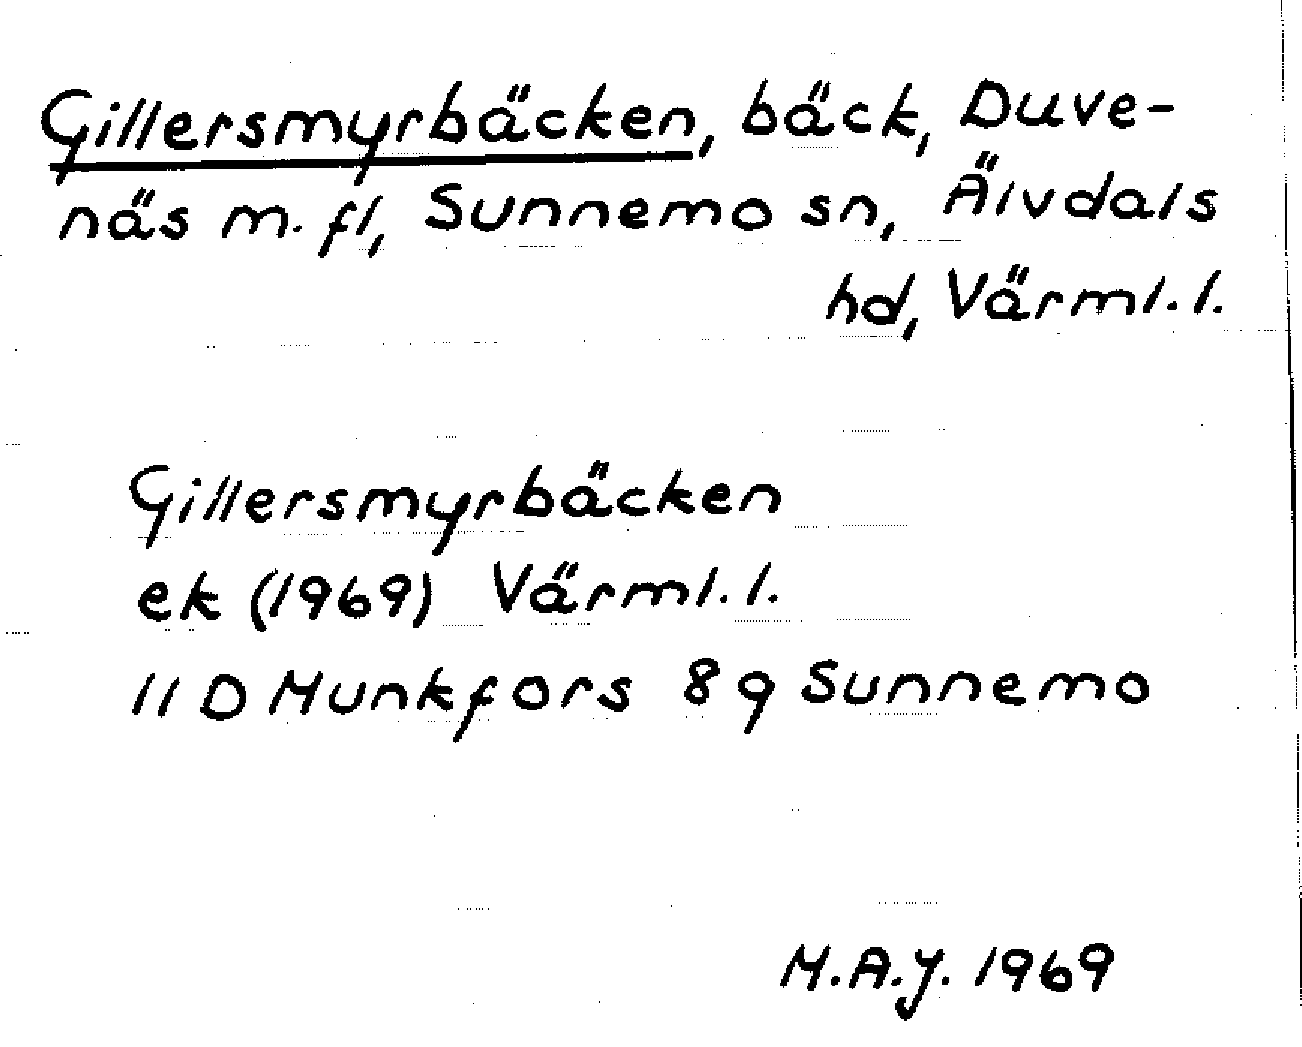 Gillersmyrbäcken, bäck, Duve-
näs m. fl, Sunnemo sn, Älvdals
hd, Värml. l.
Gillersmyrbäcken
ek (1969) Värml. l.
11 D Munkfors 8 g Sunnemo
M.A.J. 1969